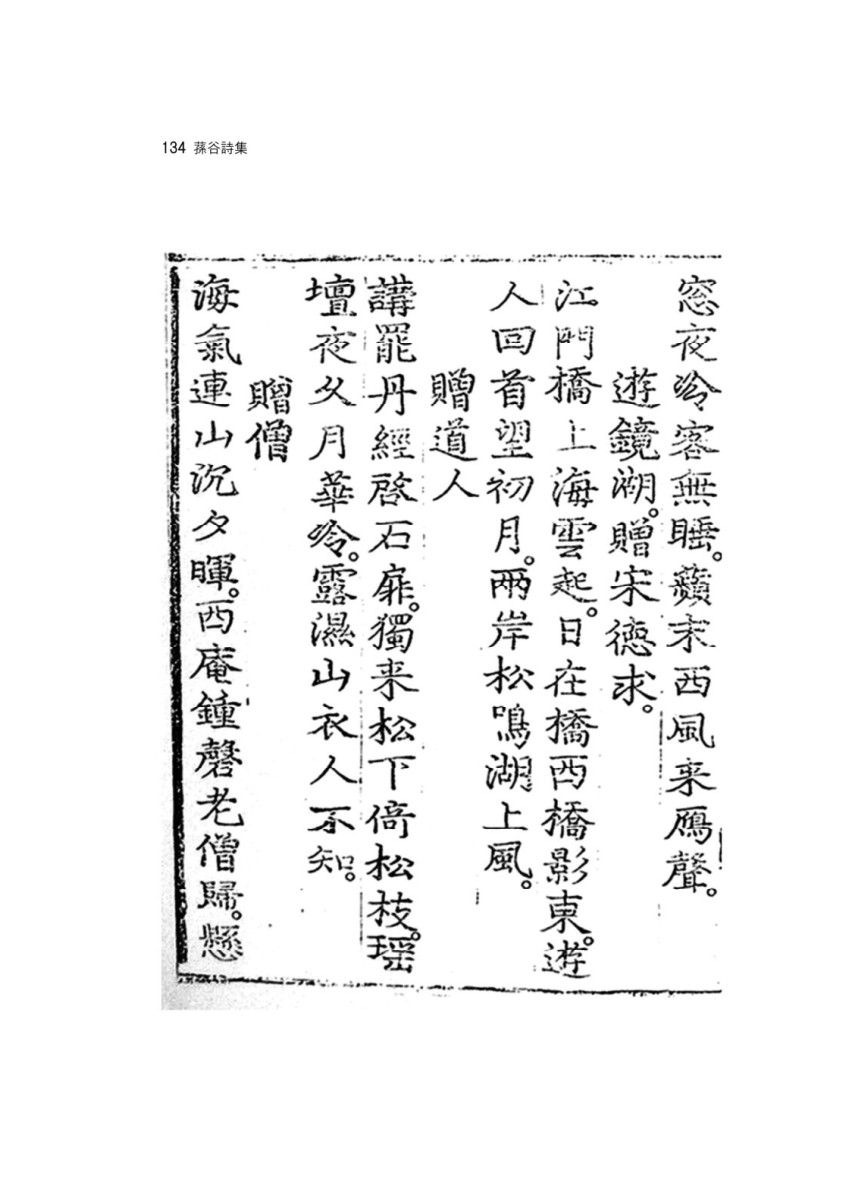 134 蓀谷詩集
窓夜冷客無睡。蘋末西風来鴈聲。
遊鏡湖。贈宋德求。
江門橋上海雲起。日在橋西橋影東。遊
人回首望初月。兩岸松鳴湖上風。
贈道人
講罷丹經啓石扉。獨来松下倚松枝。瑶
壇夜久月華冷。露濕山衣人不知。
贈僧
海氣連山沉夕暉。西庵鍾磬老僧歸。懸